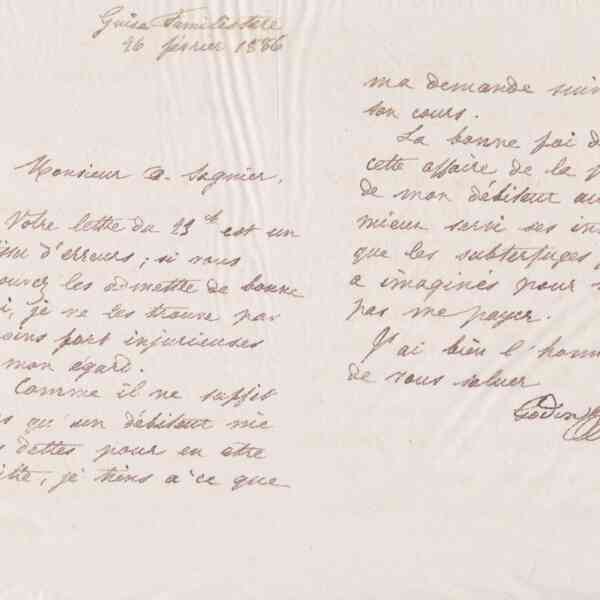 Guise Familistère
26 février 1886
Monsieur A. Sagnier,
Votre lettre du 23 ct est un
issu d'erreurs ; si vous
ouvez les admettre de bonne
i, je ne les trouve pas
oins fort injurieuses
mon égard.
Comme il ne suffit
s qu'un débiteur nie
s dettes pour en être
itte, je tiens à ce que
ma demande suiv
son cours.
La bonne foi d
cette affaire de la p
de mon débiteur au
mieux servi ses in
que les subterfuges
a imaginés pour
pas me payer.
J'ai bien l'honn
de vous saluer
Godin